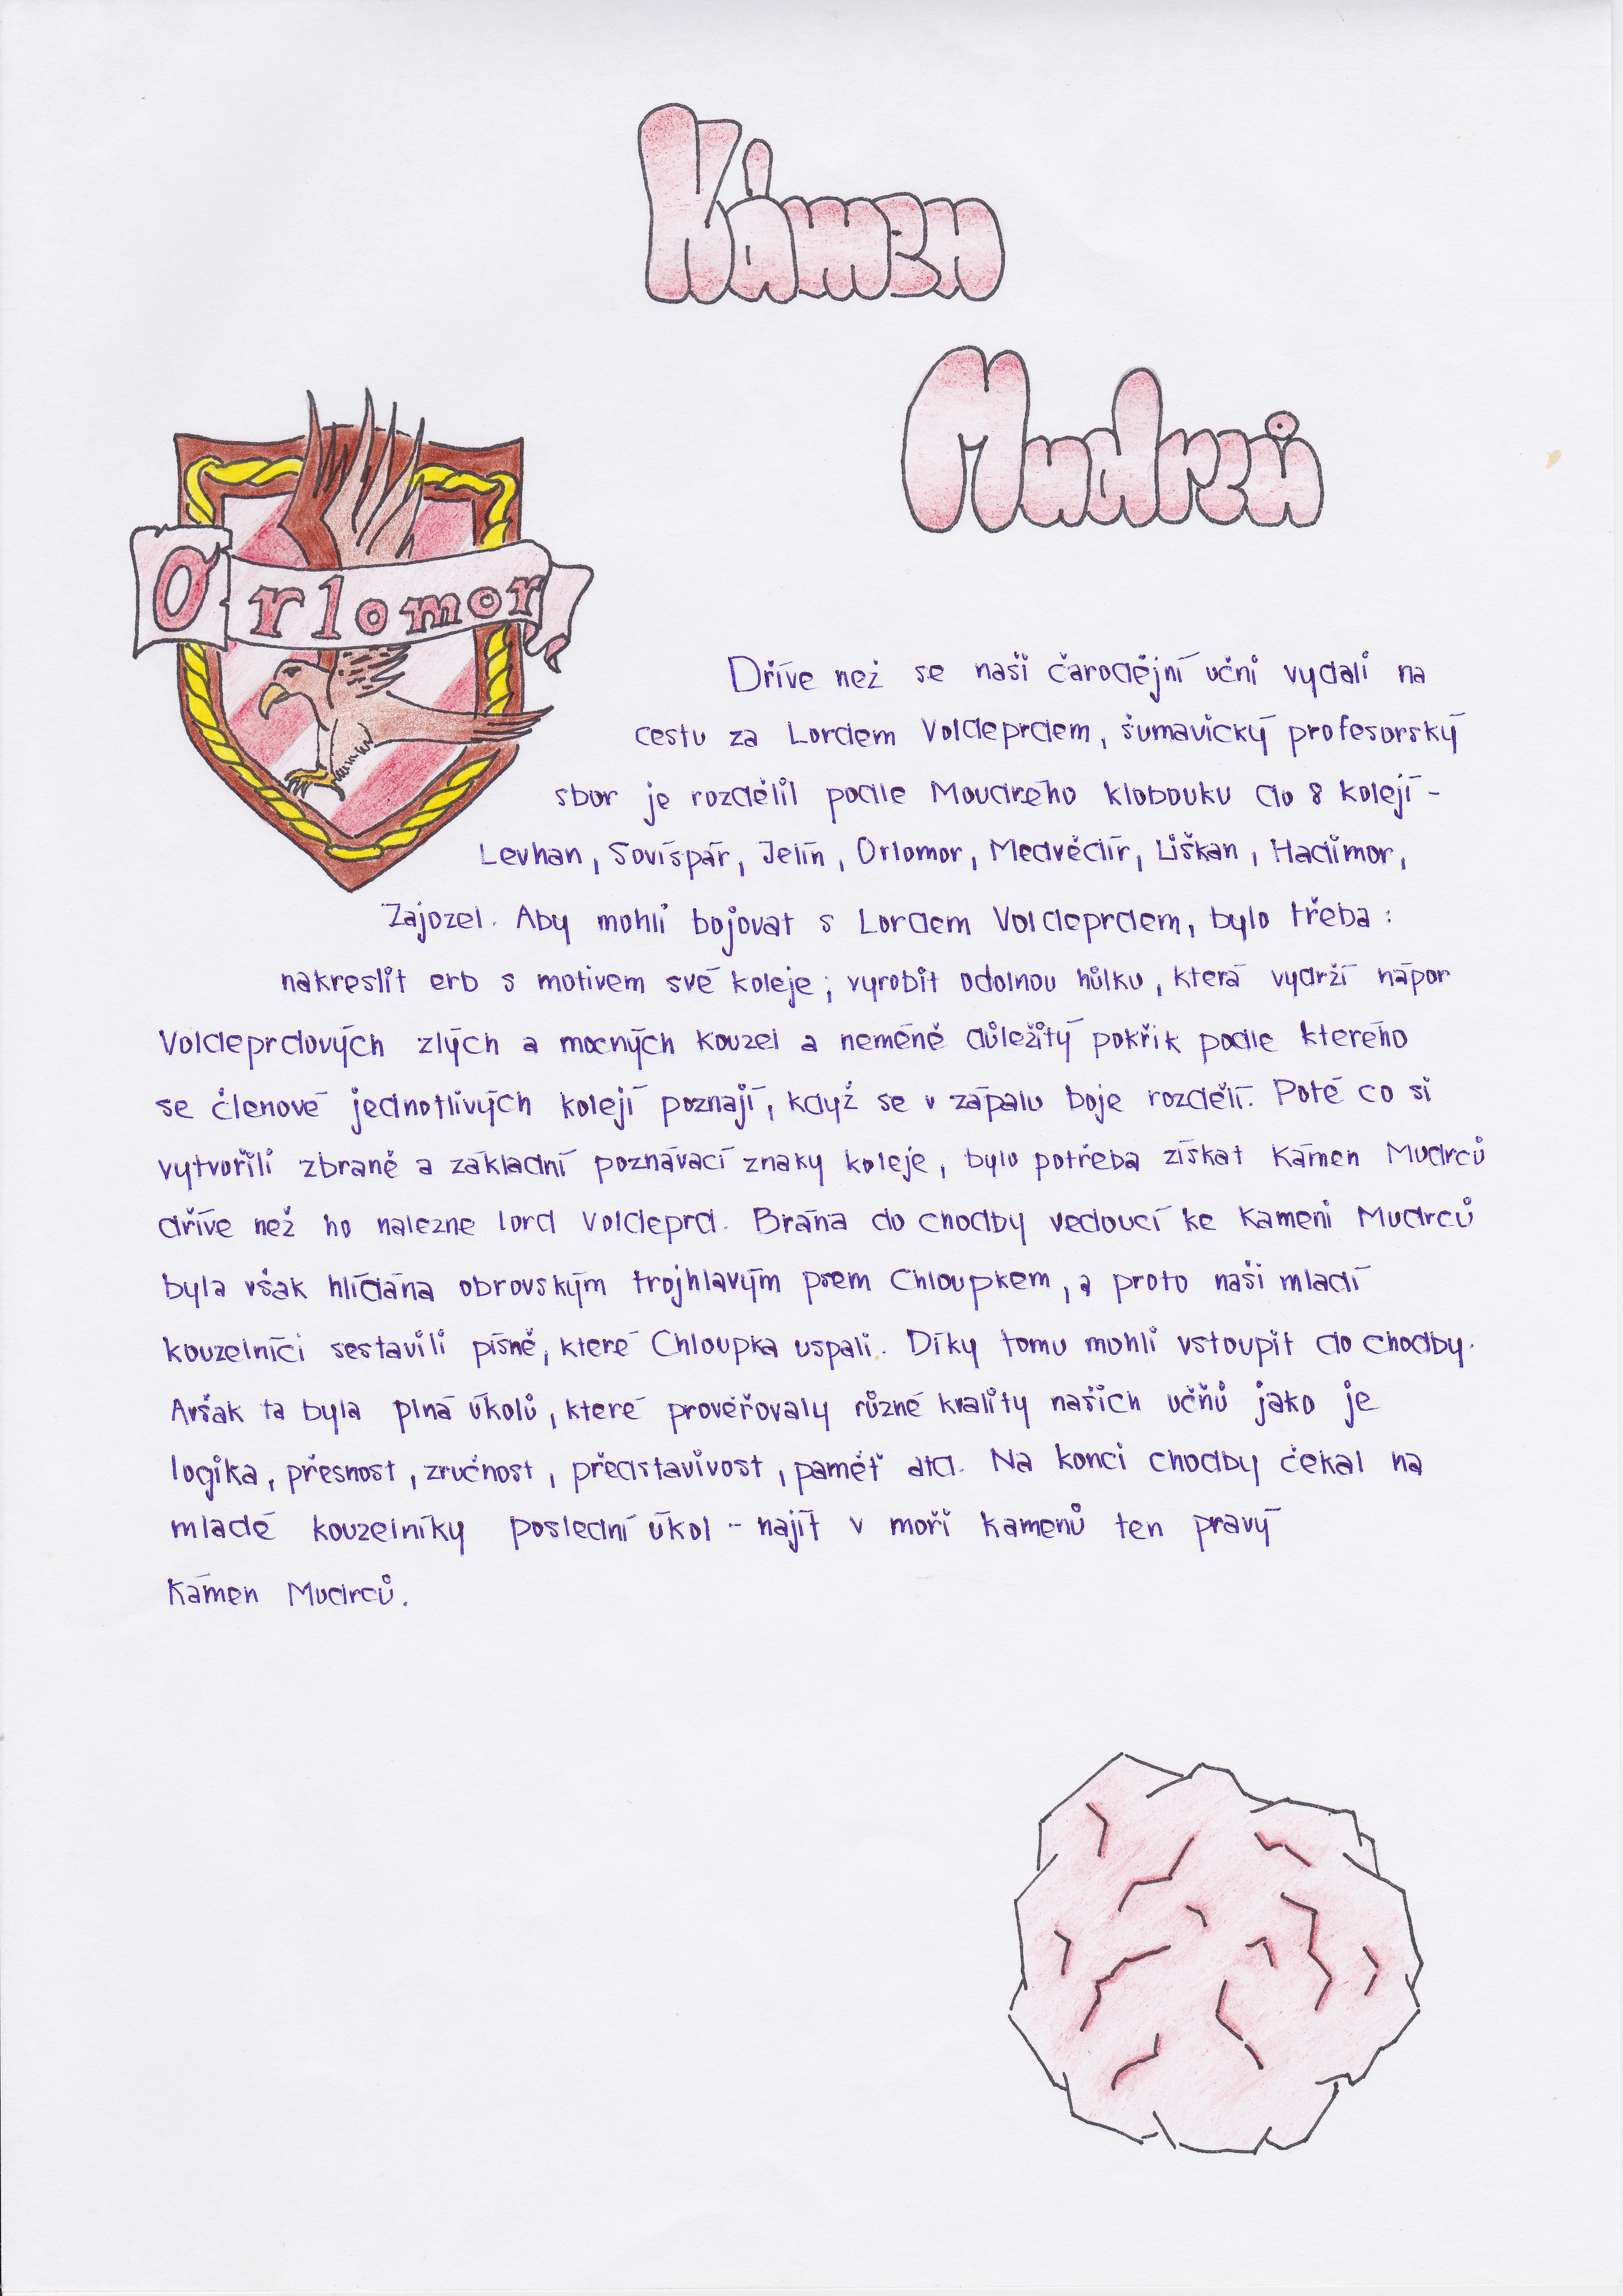 Kámen
Mudrců
Orlomor
Dříve než se naši čarodějní učni vydali na
cestu za Lordem Voldeprdem, šumavický profesorský
sbor je rozdělil podle Moudrého klobouku do 8 kolejí -
Levhan, Sovíspár, Jelín, Orlomor, Medvědír, Liškan, Hadimor,
Zajozel. Aby mohli bojovat s Lordem Voldeprdem, bylo třeba:
nakreslit erb s motivem své koleje; vyrobit odolnou hůlku, která vydrží nápor
Voldeprdových zlých a mocných kouzel a neméně důležitý pokřik podle kterého
se členové jednotlivých kolejí poznají, když se v zápalu boje rozdělí. Poté co si
vytvořili zbraně a základní poznávací znaky koleje, bylo potřeba získat Kámen Mudrců
dříve než ho nalezne lord Voldeprd. Brána do chodby vedoucí ke Kameni Mudrců
byla však hlídána obrovským trojhlavým psem Chloupkem, a proto naši mladí
kouzelníci sestavili písně, které Chloupka uspali. Díky tomu mohli vstoupit do chodby.
Avšak ta byla plná úkolů, které prověřovaly různé kvality našich učňů jako je
logika, přesnost, zručnost, představivost, paměť atd. Na konci chodby čekal na
mladé kouzelníky poslední úkol - najít v moři kamenů ten pravý
Kámen Mudrců.